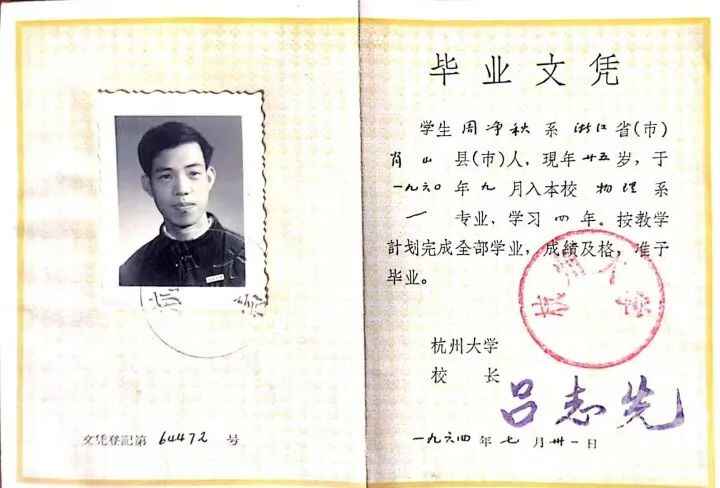 毕业文凭
学生周净秋系浙江省(市)
肖山县(市)人，现年廿五岁，于
一九六〇年九月入本校物理系
一专业，学习四年。按教学
計划完成全部学业，成绩及格，准予
毕业。
杭州大学
杭州大学
校长 吕志先
一九六四年七月卅一日
文凭登記第 64472 号